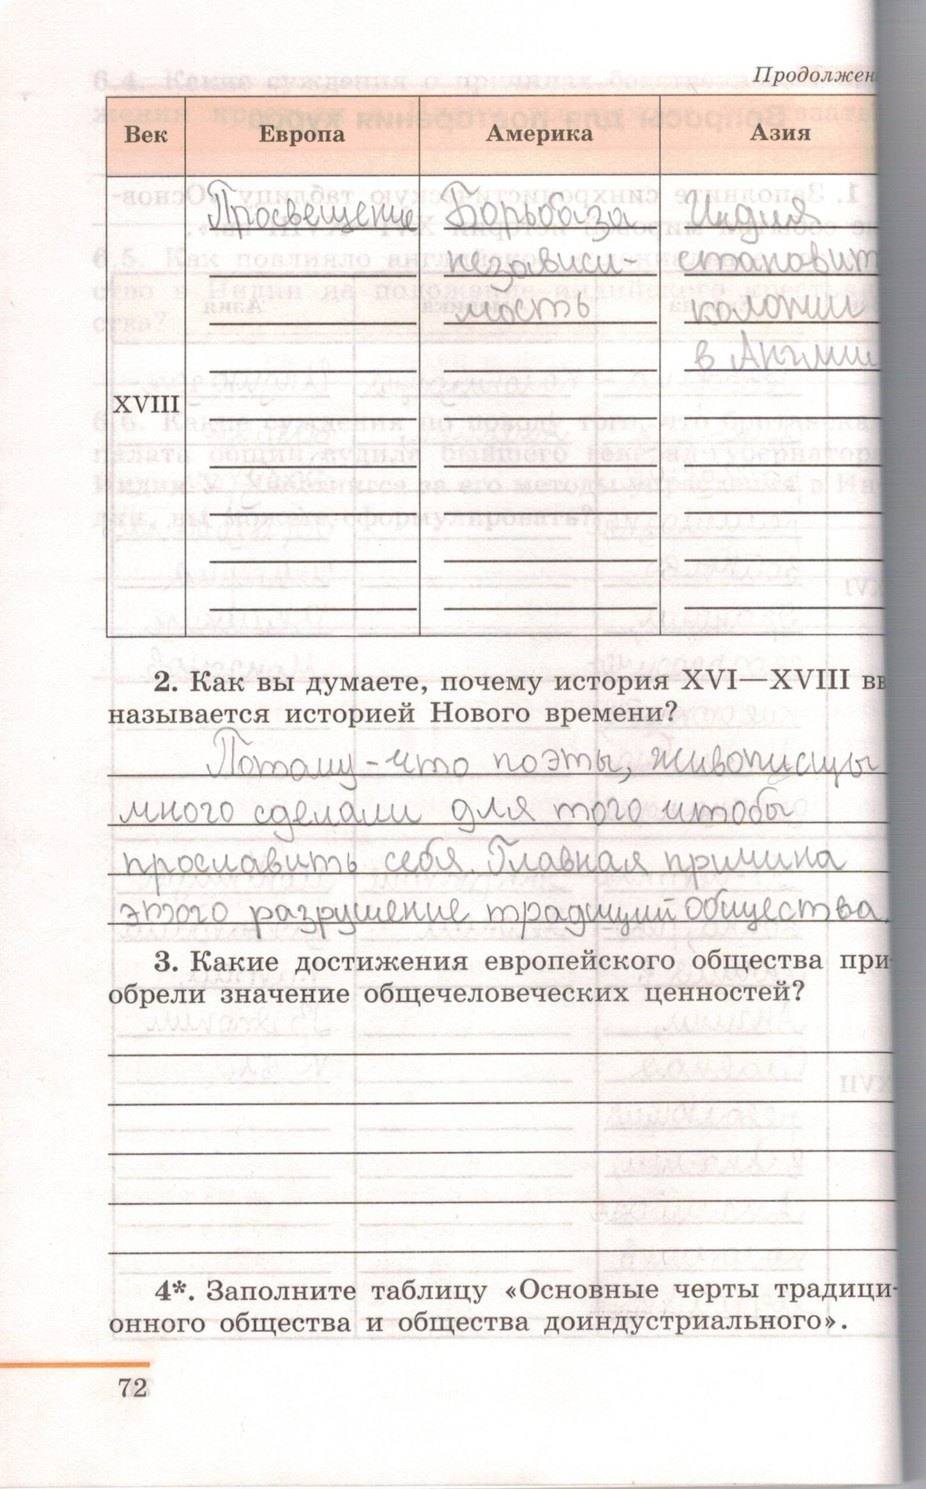 Продолжен
Век Европа Америка Азия
XVIII
Просвещение
Борьба за
независи-
мость
Индия
становит
колонии
в Англии
2. Как вы думаете, почему история XVI—XVIII вв
называется историей Нового времени?
Потому-что поэты, живописцы
много сделали для того чтобы
прославить себя. Главная причина
этого разрушение традиций общества.
3. Какие достижения европейского общества при-
обрели значение общечеловеческих ценностей?
4*. Заполните таблицу «Основные черты традици-
онного общества и общества доиндустриального».
72